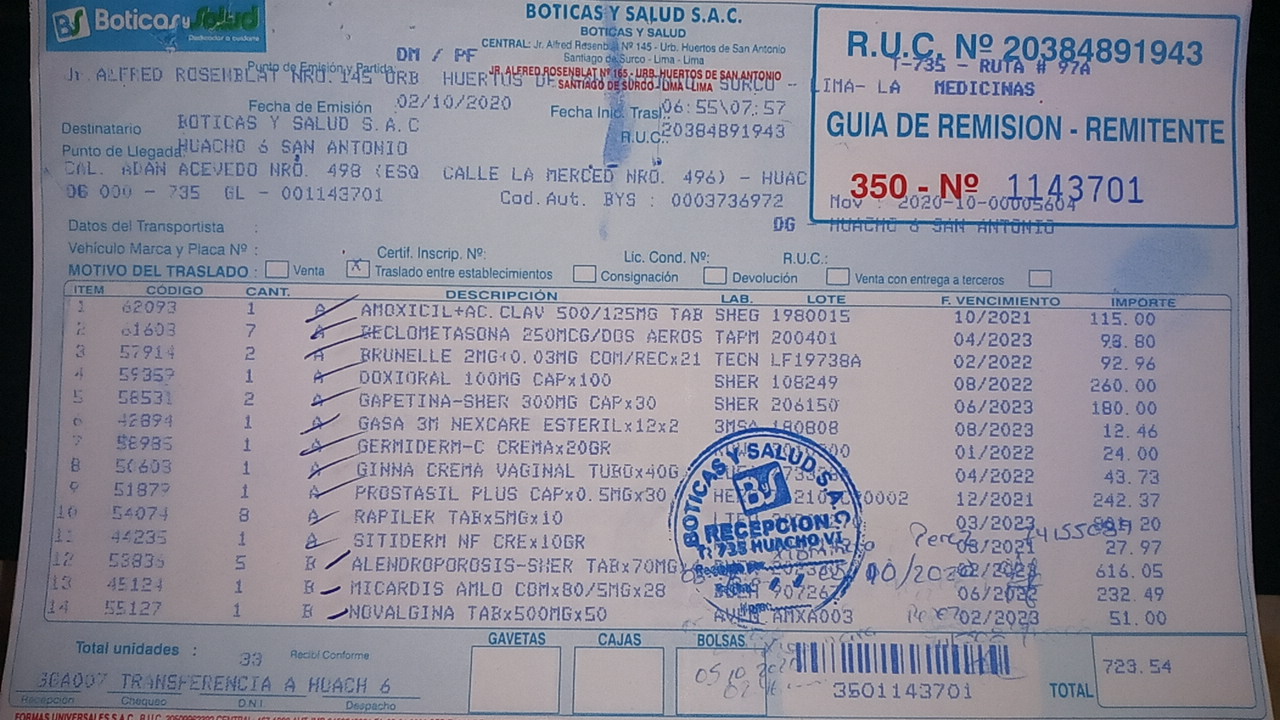 BS Boticas y Salud
BOTICAS Y SALUD S.A.C.
BOTICAS Y SALUD
DM / PF
CENTRAL: Jr. Alfred Rosenblat Nº 145 - Urb. Huertos de San Antonio
Santiago de Surco - Lima - Lima
Punto de Emisión y Partida
Jr. ALFRED ROSENBLAT NRO. 145 URB HUERTOS DE SAN ANTONIO SURCO - LIMA- LA
JR. ALFRED ROSENBLAT Nº 165 - URB. HUERTOS DE SAN ANTONIO
SANTIAGO DE SURCO - LIMA - LIMA
R.U.C. Nº 20384891943
T-735 - RUTA # 97A
MEDICINAS
GUIA DE REMISION - REMITENTE
350 - Nº 1143701
Mov : 2020-10-00005604
DG - HUACHO 6 SAN ANTONIO
Fecha de Emisión 02/10/2020 Fecha Inic. Trasl.: 06:55\07:57
Destinatario BOTICAS Y SALUD S.A.C R.U.C.: 20384891943
Punto de Llegada: HUACHO 6 SAN ANTONIO
CAL. ADAN ACEVEDO NRO. 498 (ESQ CALLE LA MERCED NRO. 496) - HUAC
OG 000 - 735 GL - 001143701 Cod.Aut. BYS : 0003736972
Datos del Transportista :
Vehículo Marca y Placa Nº : Certif. Inscrip. Nº: Lic. Cond. Nº: R.U.C.:
MOTIVO DEL TRASLADO : Venta X Traslado entre establecimientos Consignación Devolución Venta con entrega a terceros
ITEM CÓDIGO CANT. DESCRIPCIÓN LAB. LOTE F. VENCIMIENTO IMPORTE
1 62093 1 A AMOXICIL+AC.CLAV 500/125MG TAB SHEG 1980015 10/2021 115.00
2 61603 7 A BECLOMETASONA 250MCG/DOS AEROS TAPM 200401 04/2023 98.80
3 57914 2 A BRUNELLE 2MG+0.03MG COM/RECx21 TECN LF19738A 02/2022 92.96
4 59357 1 A DOXIORAL 100MG CAPx100 SHER 108249 08/2022 260.00
5 58531 2 A GAPETINA-SHER 300MG CAPx30 SHER 206150 06/2023 180.00
6 42894 1 A GASA 3M NEXCARE ESTERILx12x2 3MSA 180808 08/2023 12.46
7 58985 1 A GERMIDERM-C CREMAx20GR 01/2022 24.00
8 50603 1 A GINNA CREMA VAGINAL TUBOx40G 04/2022 43.73
9 51879 1 A PROSTASIL PLUS CAPx0.5MGx30 12/2021 242.37
10 54074 8 A RAPILER TABx5MGx10 03/2023
11 44235 1 A SITIDERM NF CREx10GR 08/2021 27.97
12 53835 5 B ALENDROPOROSIS-SHER TABx70MG 616.05
13 45124 1 B MICARDIS AMLO COMx80/5MGx28 06/2022 232.49
14 55127 1 B NOVALGINA TABx500MGx50 AVEN AMXA003 02/2023 51.00
BOTICAS Y SALUD S.A.C.
BS
RECEPCION
T: 735 HUACHO VI
Perez
Total unidades : 33 Recibí Conforme GAVETAS CAJAS BOLSAS
TRANSFERENCIA A HUACH 6
Recepción Chequeo D.N.I Despacho
3501143701
TOTAL 723.54